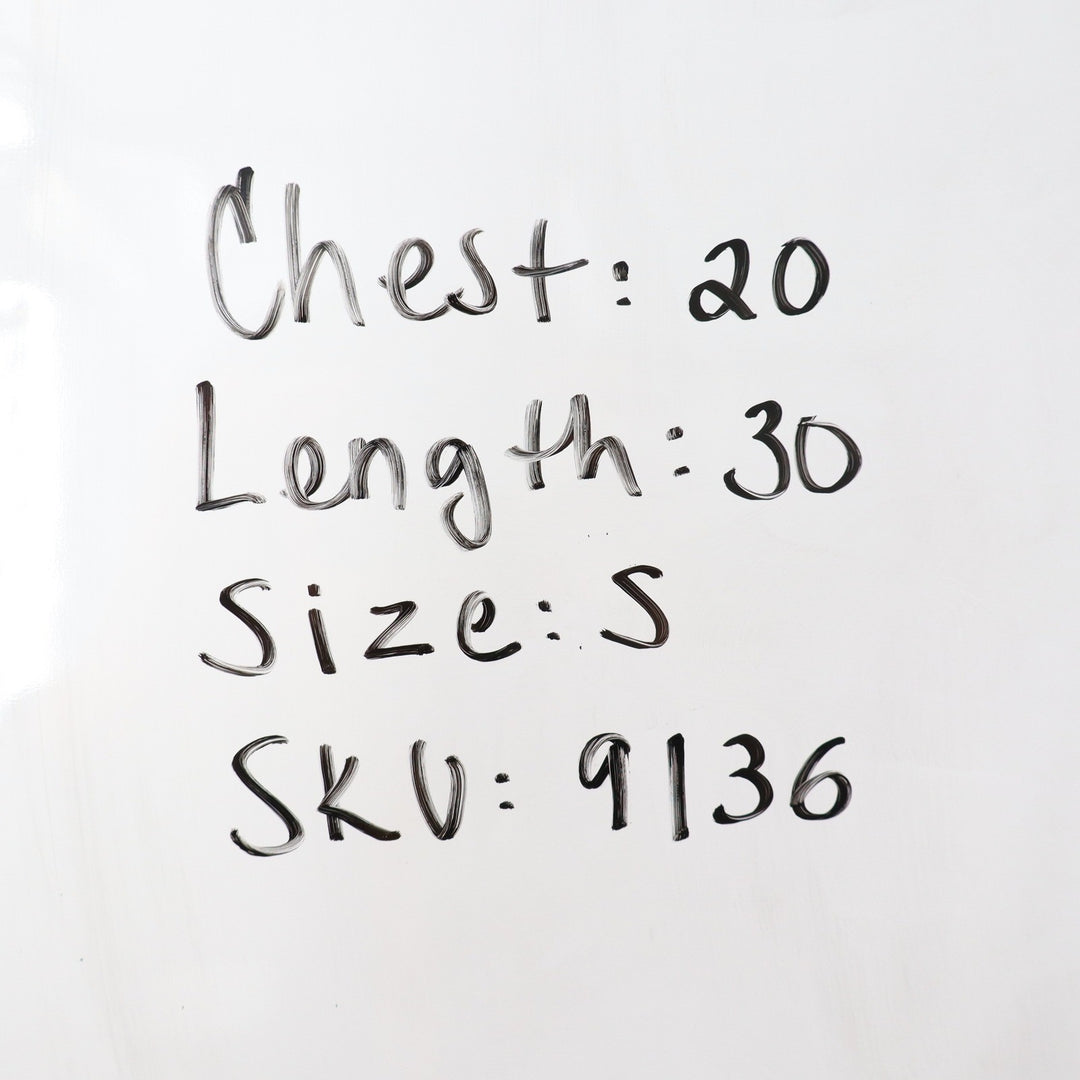 Chest: 20
Length: 30
Size: S
SKU: 9136